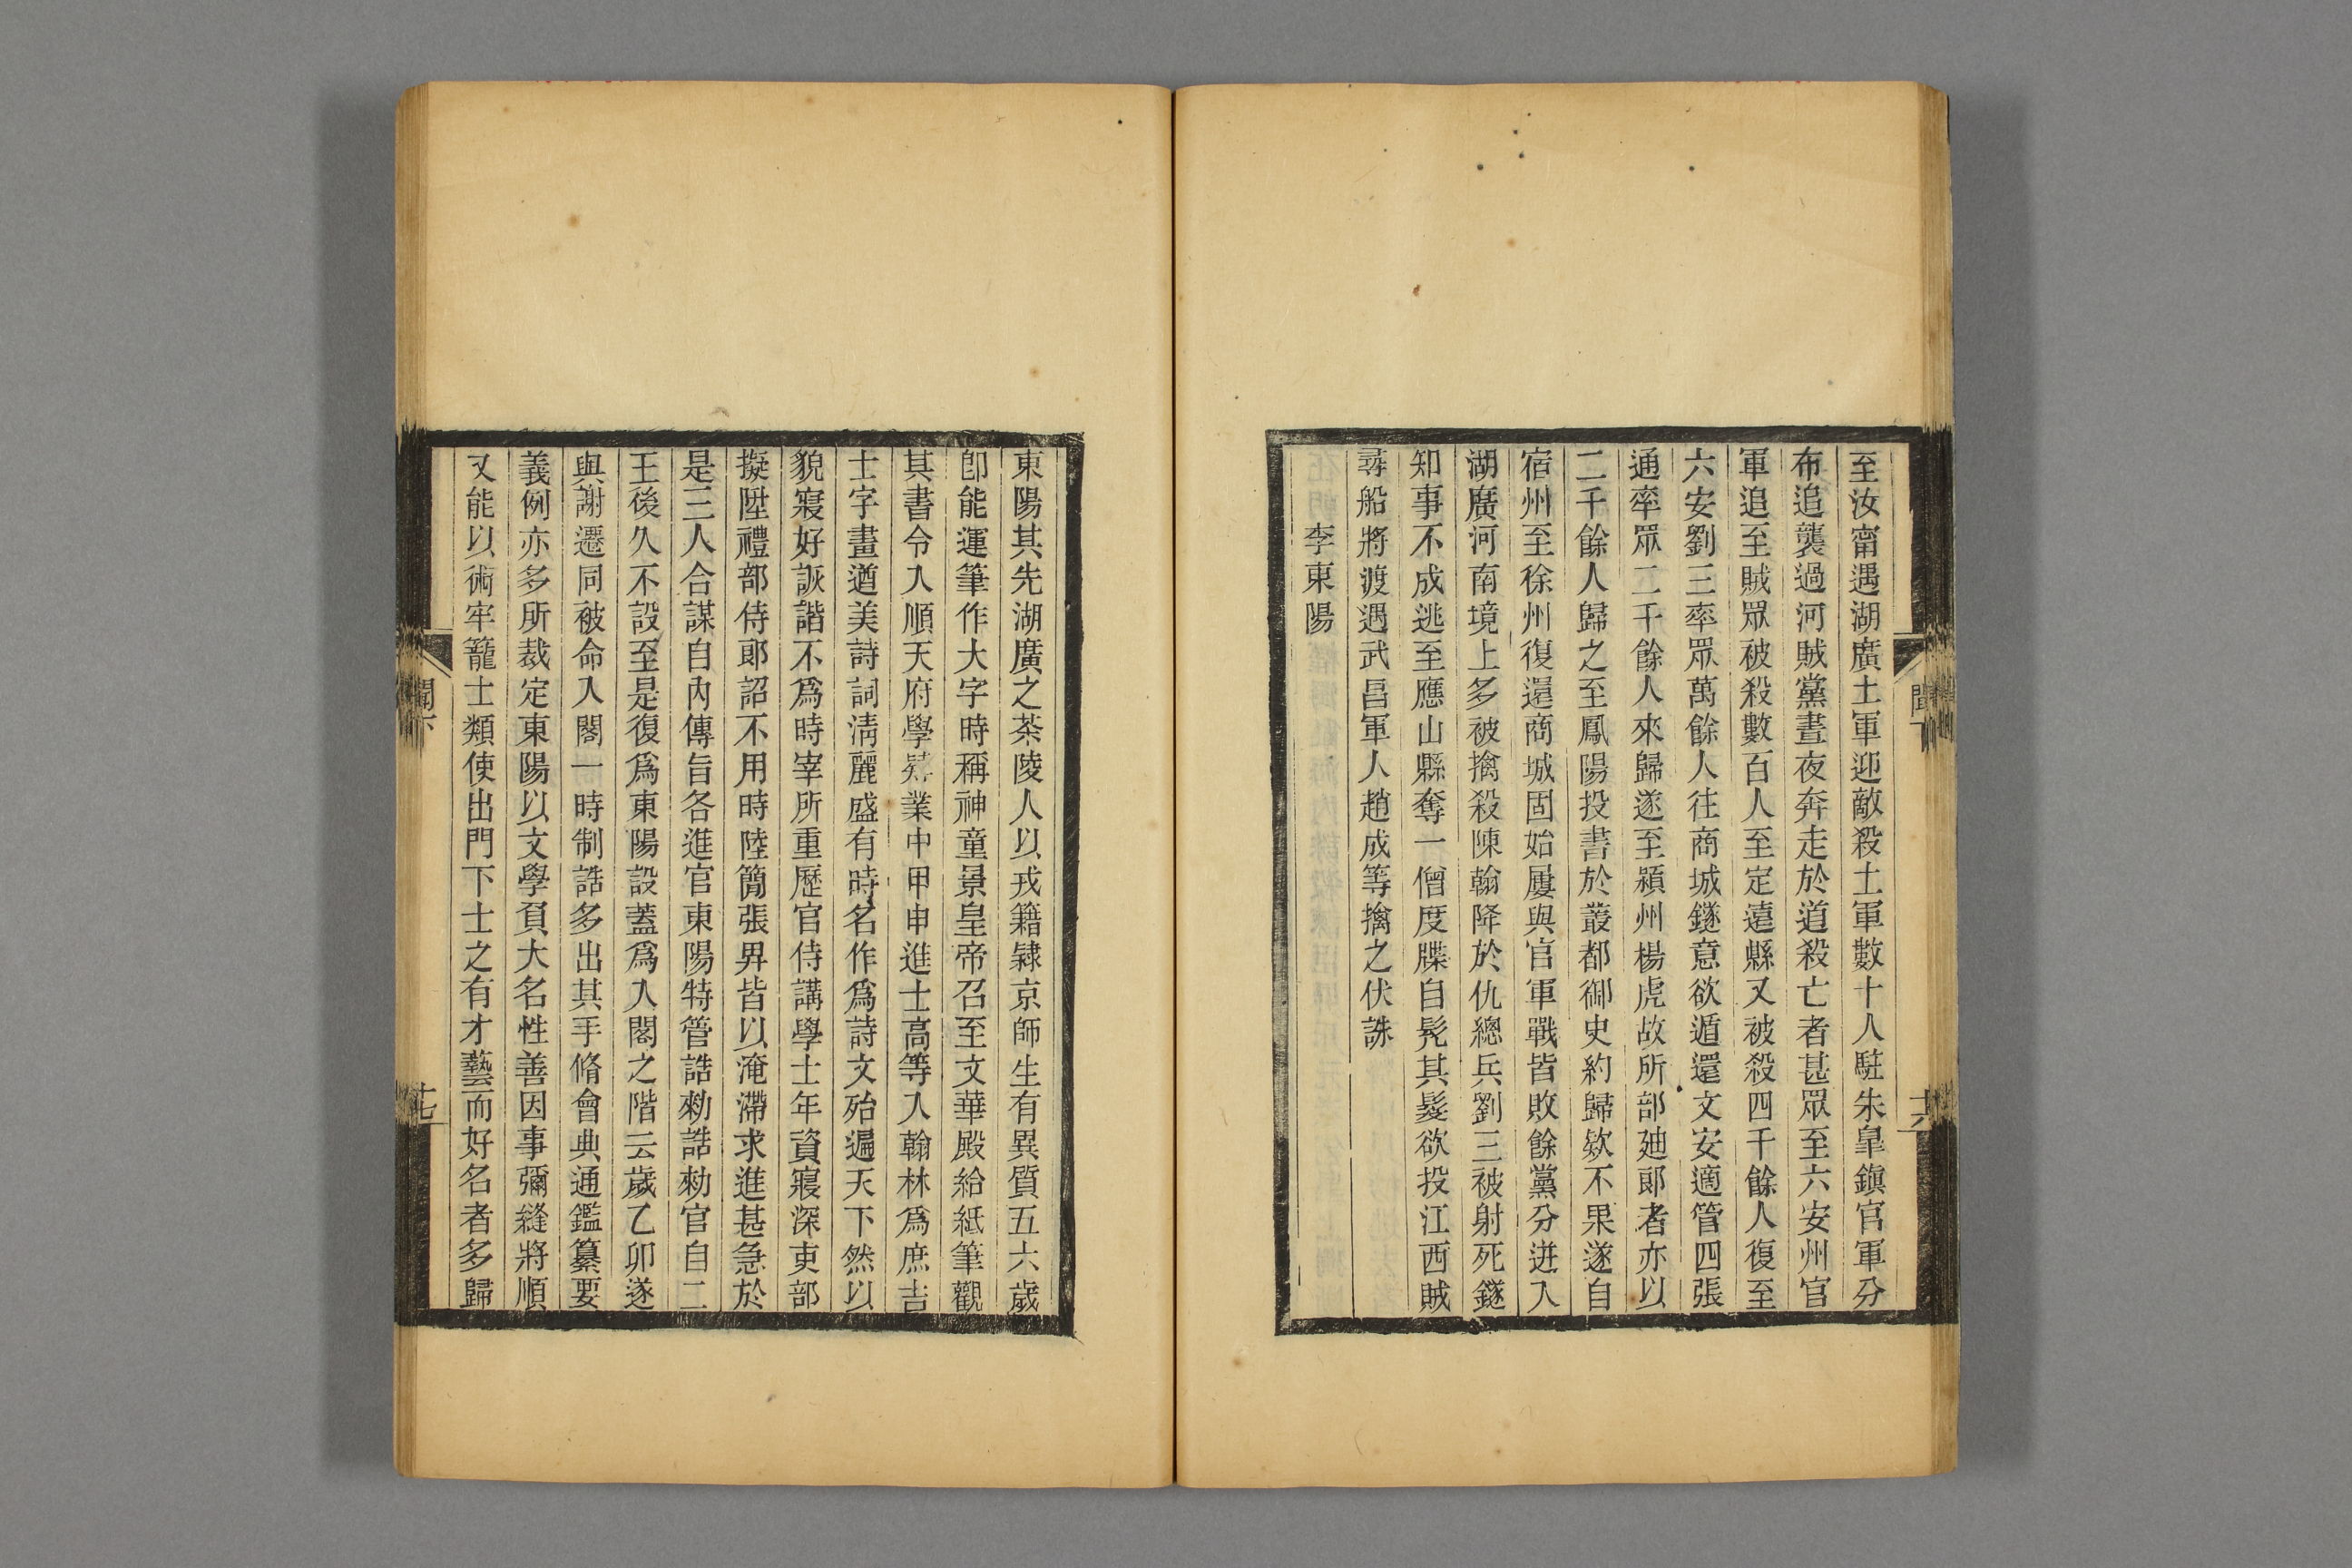 至汝甯遇湖廣土軍迎敵殺土軍數十人駐朱臯鎭官軍分
布追襲過河賊黨晝夜奔走於道殺亡者甚眾至六安州官
軍追至賊眾被殺數百人至定遠縣又被殺四千餘人復至
六安劉三率眾萬餘人往商城鐩意欲遁還文安適管四張
通率眾二千餘人來歸遂至潁州楊虎故所部廸郞者亦以
二千餘人歸之至鳳陽投書於叢都御史約歸欵不果遂自
宿州至徐州復還商城固始屢與官軍戰皆敗餘黨分迸入
湖廣河南境上多被擒殺陳翰降於仇總兵劉三被射死鐩
知事不成逃至應山縣奪一僧度牒自髠其髮欲投江西賊
尋船將渡遇武昌軍人趙成等擒之伏誅
李東陽
聞下
十六
東陽其先湖廣之茶陵人以戎籍隸京師生有異質五六歲
卽能運筆作大字時稱神童景皇帝召至文華殿給紙筆觀
其書令入順天府學肄業中甲申進士高等入翰林爲庶吉
士字畫遒美詩詞淸麗盛有時名作爲詩文殆遍天下然以
貌寢好詼諧不爲時宰所重歷官侍講學士年資寖深吏部
擬陞禮部侍郞詔不用時陸簡張昇皆以淹滯求進甚急於
是三人合謀自內傳旨各進官東陽特管誥勑誥勑官自二
王後久不設至是復爲東陽設蓋爲入閣之階云歲乙卯遂
與謝遷同被命入閣一時制誥多出其手脩會典通鑑纂要
義例亦多所裁定東陽以文學負大名性善因事彌縫將順
又能以術牢籠士類使出門下士之有才藝而好名者多歸
聞下
十七